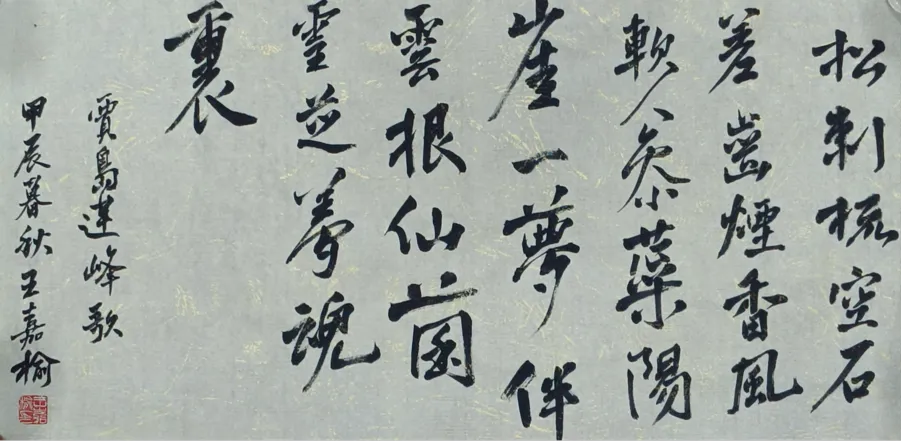 松刺梳空石
差齒煙香風
軟人參蕊陽
崖一夢伴
雲根仙菌
靈芝夢魂
裏
賈島蓮峰歌
甲辰暮秋王嘉榆